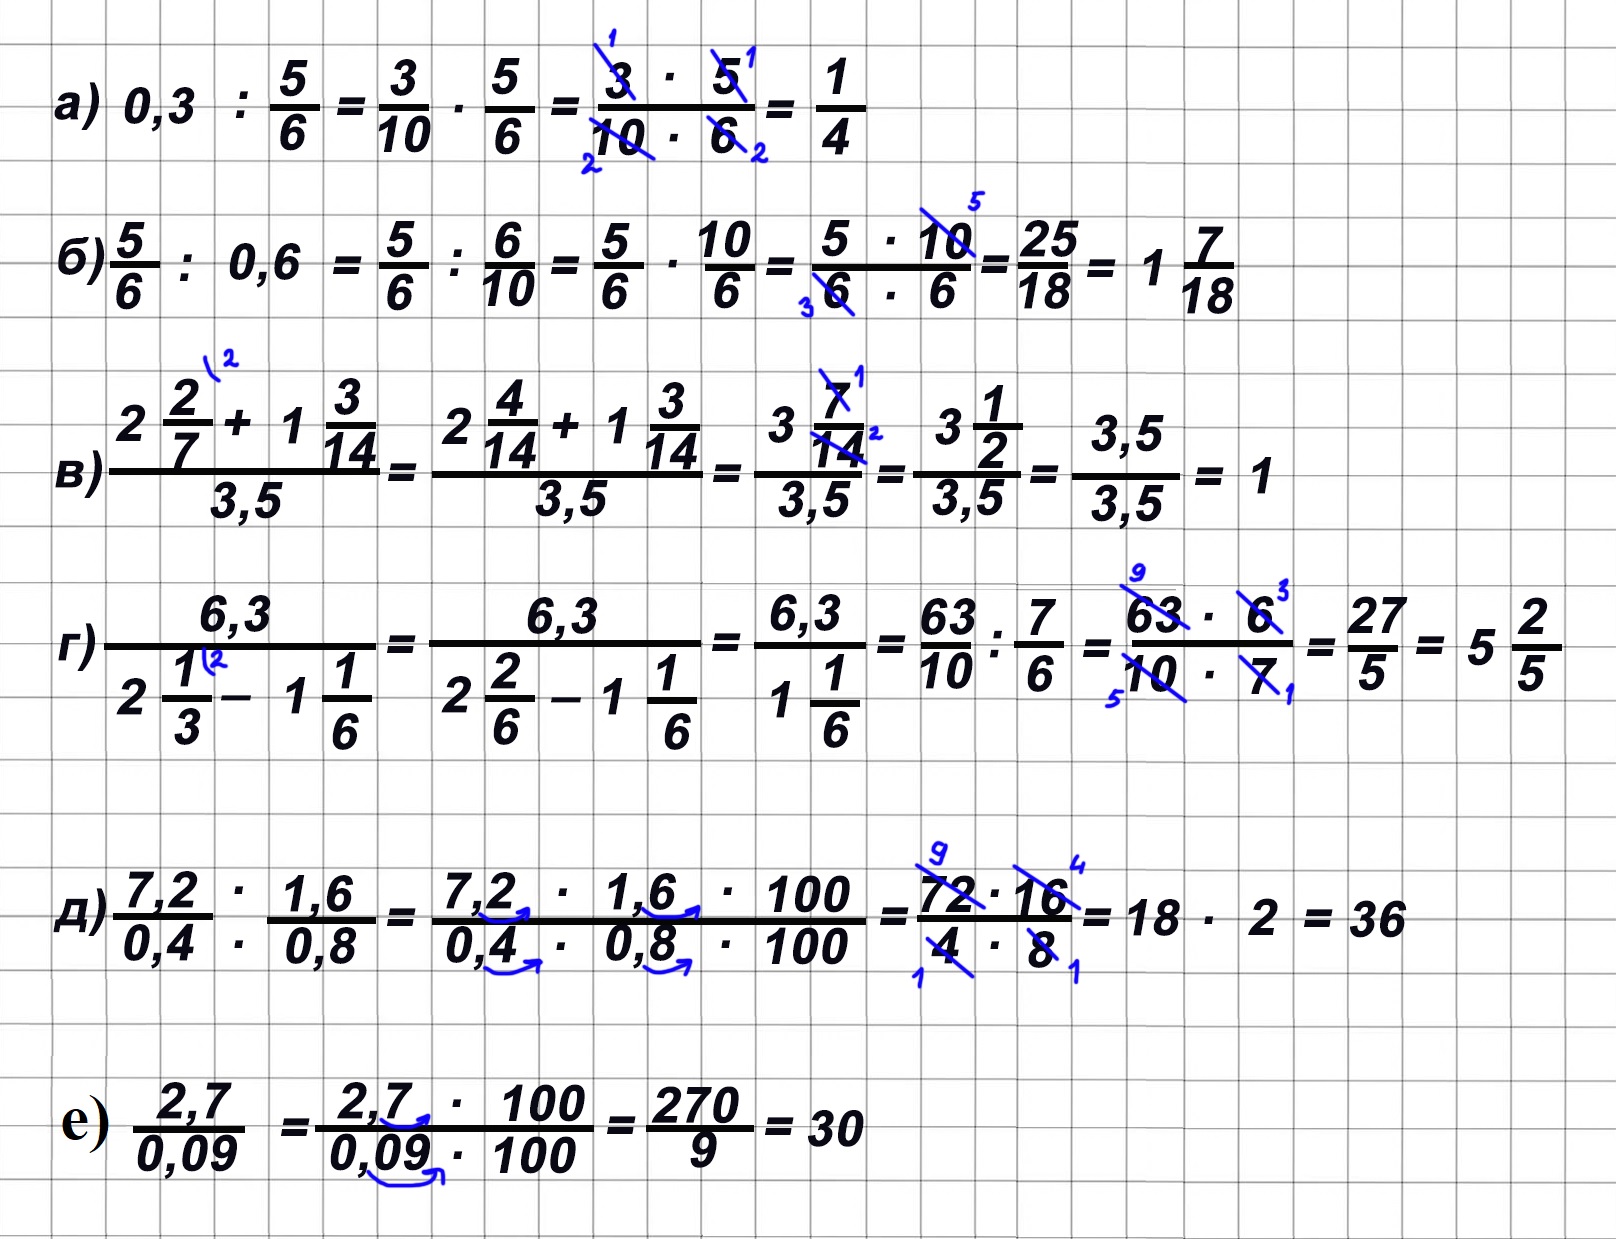 а) 0,3 : 5/6 = 3/10 · 5/6 = (3 · 5)/(10 · 6) = 1/4 1 1 2 2
б) 5/6 : 0,6 = 5/6 : 6/10 = 5/6 · 10/6 = (5 · 10)/(6 · 6) = 25/18 = 1 7/18 5 3
в) (2 2/7 + 1 3/14)/3,5 = (2 4/14 + 1 3/14)/3,5 = (3 7/14)/3,5 = (3 1/2)/3,5 = 3,5/3,5 = 1 2 1 2
г) 6,3/(2 1/3 – 1 1/6) = 6,3/(2 2/6 – 1 1/6) = 6,3/(1 1/6) = 63/10 : 7/6 = (63 · 6)/(10 · 7) = 27/5 = 5 2/5 2 9 3 5 1
д) 7,2/0,4 · 1,6/0,8 = (7,2 · 1,6 · 100)/(0,4 · 0,8 · 100) = (72 · 16)/(4 · 8) = 18 · 2 = 36 9 4 1 1
е) 2,7/0,09 = (2,7 · 100)/(0,09 · 100) = 270/9 = 30